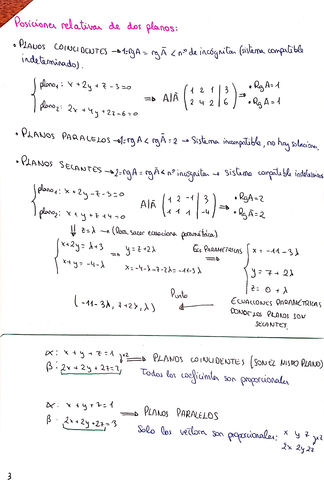 Posiciones relativas de dos planos:
• PLANOS COINCIDENTES → 1=rgA = rgÃ < nº de incógnitas (sistema compatible
indeterminado).
plano₁: x + 2y + z - 3 = 0
plano₂: 2x + 4y + 2z - 6 = 0
⇒ A|Ã ( 1 2 1 | 3
2 4 2 | 6 ) → • RgA = 1
• RgÃ = 1
• PLANOS PARALELOS → 1=rgA < rgÃ = 2 → Sistema incompatible, no hay solución.
• PLANOS SECANTES → 2=rgA = rgÃ < nº incógnitas → sistema compatible indeterminado
plano₁: x + 2y - z - 3 = 0
plano₂: x + y + z + 4 = 0
A|Ã ( 1 2 -1 | 3
1 1 1 | -4 ) → • RgA = 2
• RgÃ = 2
⇓ z = λ → (Para sacar ecuaciones paramétricas)
x + 2y = λ + 3
x + y = -4 - λ
⇒ y = 7 + 2λ
x = -4 - λ - 7 - 2λ = -11 - 3λ
Ec. PARAMÉTRICAS
x = -11 - 3λ
y = 7 + 2λ
z = 0 + λ
Punto
(-11 - 3λ, 7 + 2λ, λ)
ECUACIONES PARAMÉTRICAS
DONDE LOS PLANOS SON
SECANTES.
α: x + y + z = 1 ×2
β: 2x + 2y + 2z = 2
⇒ PLANOS COINCIDENTES (SON EL MISMO PLANO)
Todos los coeficientes son proporcionales
α: x + y + z = 1
β: 2x + 2y + 2z = 3
⇒ PLANOS PARALELOS
Solo los vectores son proporcionales: x y z ×2
2x 2y 2z
3